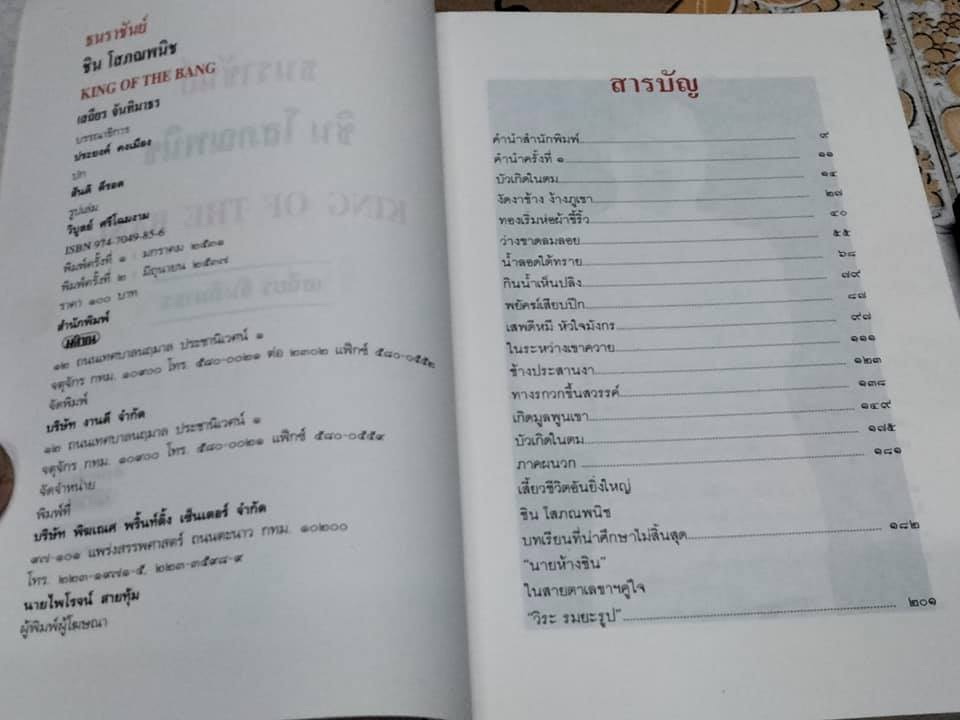 ธนราชันย์
ชิน โสภณพนิช
KING OF THE BANG
เสถียร จันทิมาธร
บรรณาธิการ
ประยงค์ คงเมือง
ปก
สันติ
รูปเล่ม
วิบูลย์ ศรีโฉมงาม
ISBN 974-7049-85-6
พิมพ์ครั้งที่ ๑ : มกราคม ๒๕๓๑
พิมพ์ครั้งที่ ๒ : มิถุนายน ๒๕๓๗
ราคา ๑๐๐ บาท
สำนักพิมพ์
มติชน
๑๒ ถนนเทศบาลนฤมาล ประชานิเวศน์ ๑
จตุจักร กทม. ๑๐๙๐๐ โทร. ๕๘๐-๐๐๒๑ ต่อ ๒๓๐๒ แฟ็กซ์ ๕๘๐-๐๕๕๒
จัดพิมพ์
บริษัท งานดี จำกัด
๑๒ ถนนเทศบาลนฤมาล ประชานิเวศน์ ๑
จตุจักร กทม. ๑๐๙๐๐ โทร. ๕๘๐-๐๐๒๑ แฟ็กซ์ ๕๘๐-๐๕๕๙
จัดจำหน่าย
พิมพ์ที่
บริษัท พิฆเณศ พริ้นท์ติ้ง เซ็นเตอร์ จำกัด
๙๗-๑๐๑ แพร่งสรรพศาสตร์ ถนนตะนาว กทม. ๑๐๒๐๐
โทร. ๒๒๓-๑๙๗๑-๕, ๒๒๓-๓๕๙๘-๙
นายไพโรจน์ สายทุ้ม
ผู้พิมพ์ผู้โฆษณา
สารบัญ
คำนำสำนักพิมพ์ ๙
คำนำครั้งที่ ๑ ๑๑
บัวเกิดในตม ๑๔
งัดงาช้าง ง้างภูเขา ๒๗
ทองเริ่มห่อผ้าขี้ริ้ว ๔๐
ว่างขาดลมลอย ๕๕
น้ำลอดใต้ทราย ๖๘
กินน้ำเห็นปลิง ๗๙
พยัคฆ์เสียบปีก ๘๗
เสพดีหมี หัวใจมังกร ๙๗
ในระหว่างเขาควาย ๑๑๑
ช้างประสานงา ๑๒๓
ทางรกวกขึ้นสวรรค์ ๑๓๘
เกิดมูลพูนเขา ๑๔๙
บัวเกิดในตม ๑๗๕
ภาคผนวก ๑๘๑
เสี้ยวชีวิตอันยิ่งใหญ่
ชิน โสภณพนิช
บทเรียนที่น่าศึกษาไม่สิ้นสุด ๑๘๒
"นายห้างชิน"
ในสายตาเลขาฯคู่ใจ
"วิระ รมยะรูป" ๒๐๑